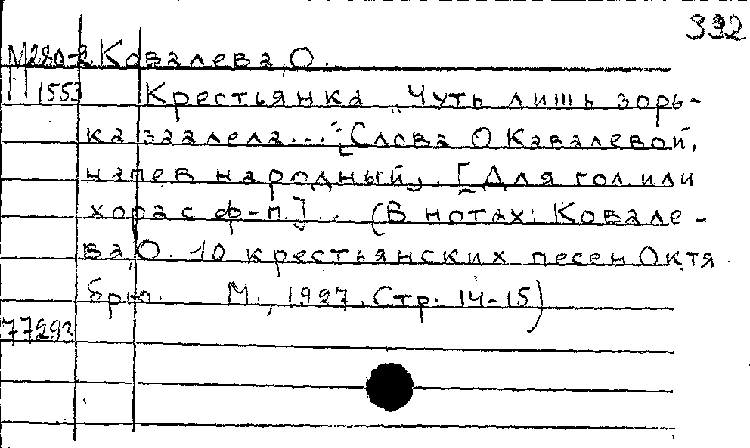 332
М280-2 Ковалева, О.
1553 Крестьянка „Чуть лишь зорь-
ка заалела...“ [Слова О Кавалевой,
напев народный]. [Для гол. или
хора с ф-п.] . (В нотах: Ковале-
ва, О. 10 крестьянских песен Октя
брю. М., 1927. Стр. 14-15)
77293